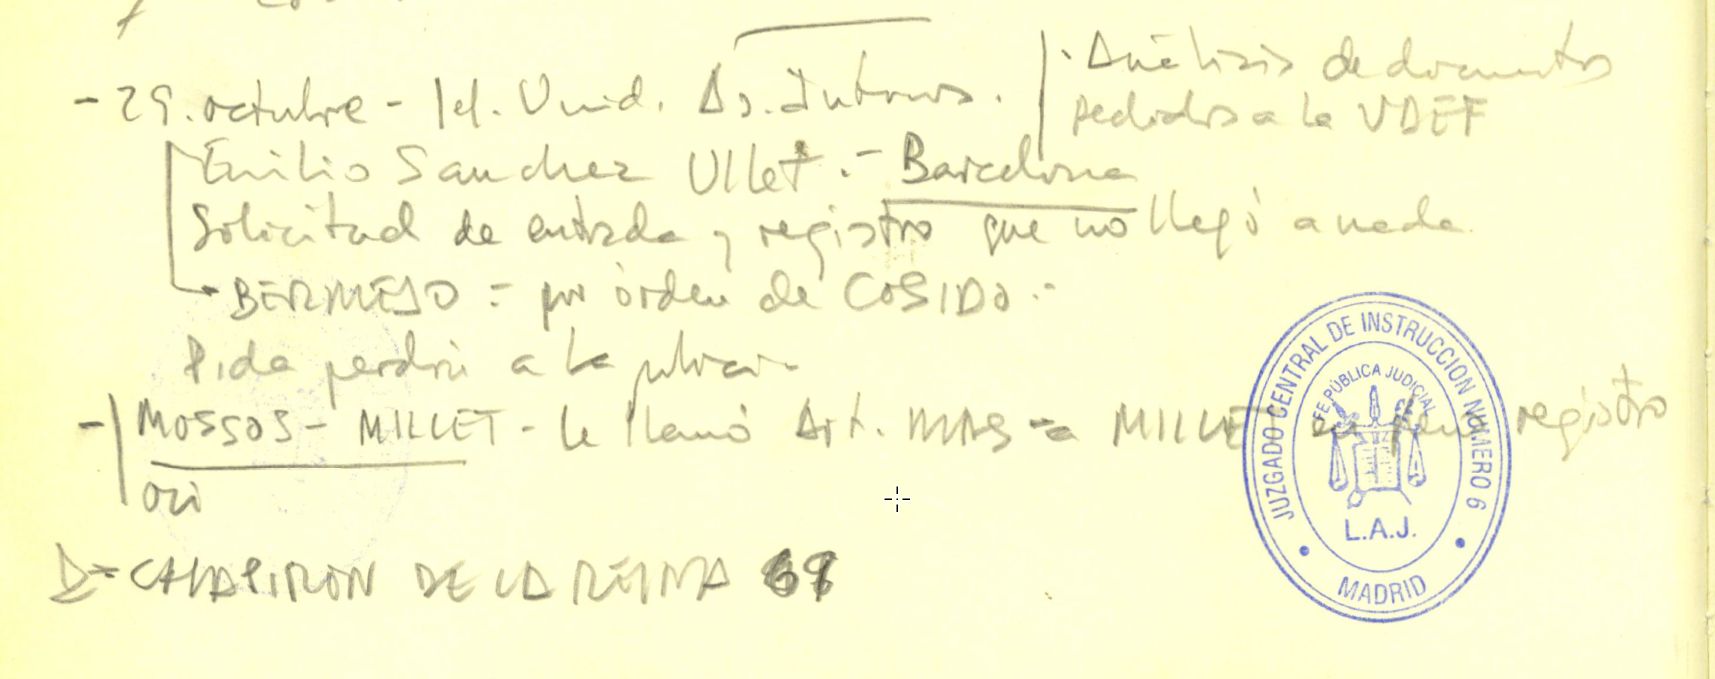 - 29. octubre - Jef. Unid. As. Internos.
· Análisis de documentos
pedidos a la UDEF
Emilio Sanchez Ullet. - Barcelona
Solicitud de entrada y registro que no llegó a nada
BERMEJO = por orden de COSIDO.-
Pide perdón a la
- MOSSOS - MILLET - le llamó Art. MAS a MILLET en registro
D = CHAPIRON DE LA REINA
JUZGADO CENTRAL DE INSTRUCCION NUMERO 6
FE PÚBLICA JUDICIAL
L.A.J.
MADRID